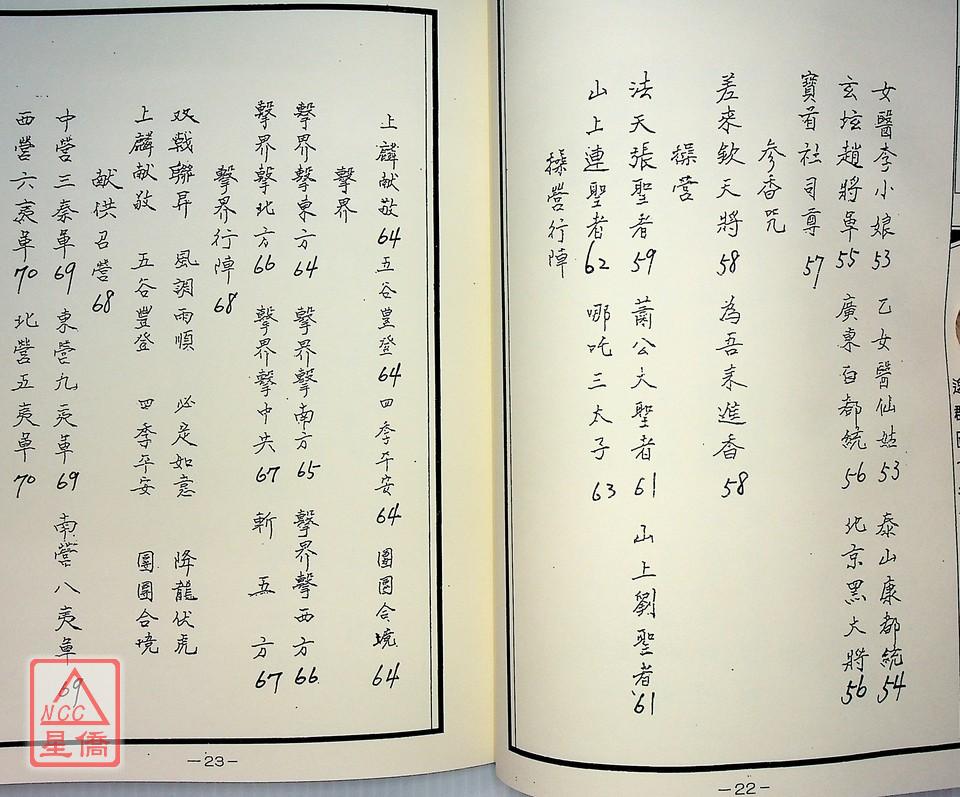 女醫李小娘53 乙女醫仙姑53 泰山康都統54
玄坛趙將軍55 廣東百都統56 北京黑大將56
寶首社司尊57
參香咒
差來欽天將58 為吾來進香58
操营
法天張聖者59 蕭公大聖者61 山上劉聖者61
山上連聖者62 哪吒三太子63
操营行陣
-22-
上麟献敬64 五谷豊登64 四季平安64 團圓合境64
擊界
擊界擊東方64 擊界擊南方65 擊界擊西方66
擊界擊北方66 擊界擊中央67 斬五方67
擊界行陣68
双戟聯昇 風調雨順 必定如意 降龍伏虎
上麟献敬 五谷豐登 四季平安 團圓合境
献供召营68
中营三秦軍69 東营九夷軍69 南营八夷軍69
西营六夷軍70 北营五夷軍70
-23-
NCC
星僑